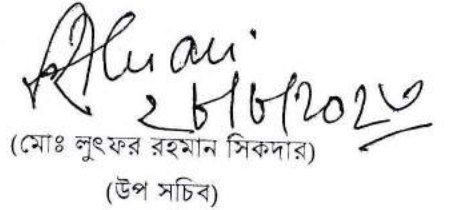 ২৮/৮/২০২৩
(মোঃ লুৎফর রহমান সিকদার)
(উপ সচিব)